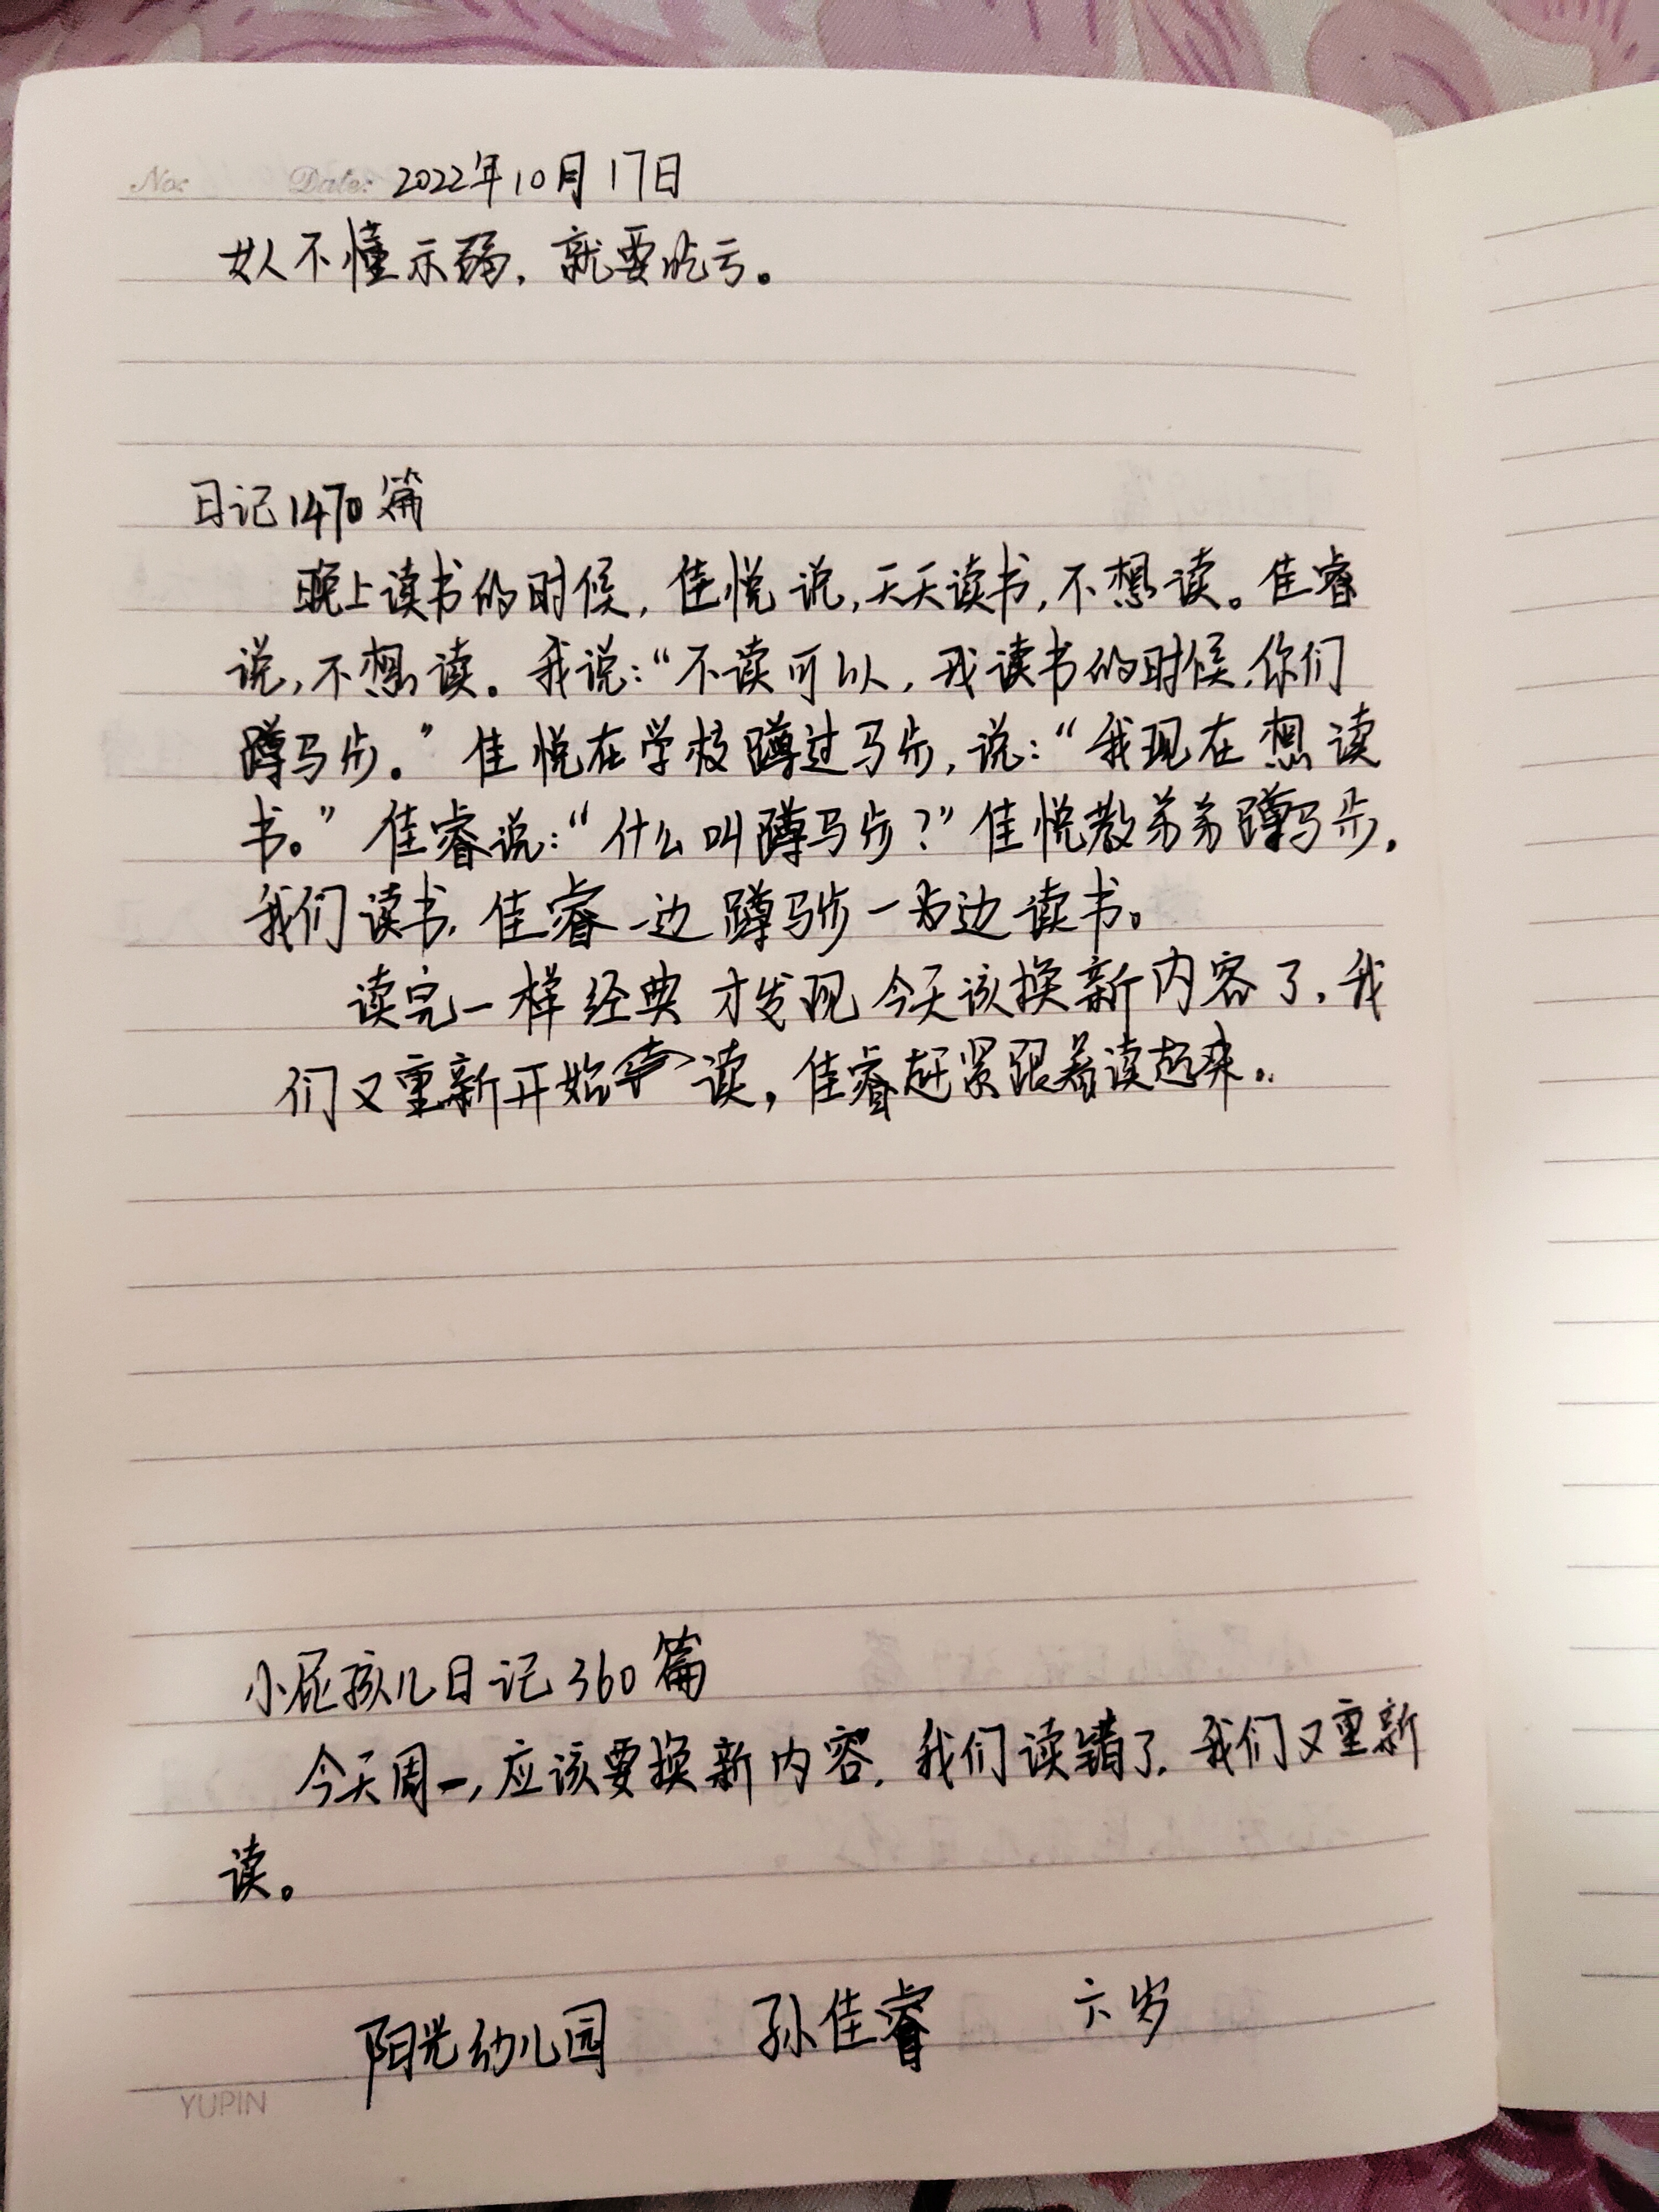 No: Date: 2022年10月17日
女人不懂示弱，就要吃亏。
日记1470篇
晚上读书的时候，佳悦说，天天读书，不想读。佳睿
说，不想读。我说：“不读可以，我读书的时候，你们
蹲马步。”佳悦在学校蹲过马步，说：“我现在想读
书。”佳睿说：“什么叫蹲马步？”佳悦教弟弟蹲马步，
我们读书，佳睿一边蹲马步一边读书。
读完一样经典才发现今天该换新内容了，我
们又重新开始读，佳睿赶紧跟着读起来。
小屁孩儿日记360篇
今天周一，应该要换新内容，我们读错了，我们又重新
读。
阳光幼儿园 孙佳睿 六岁
YUPIN